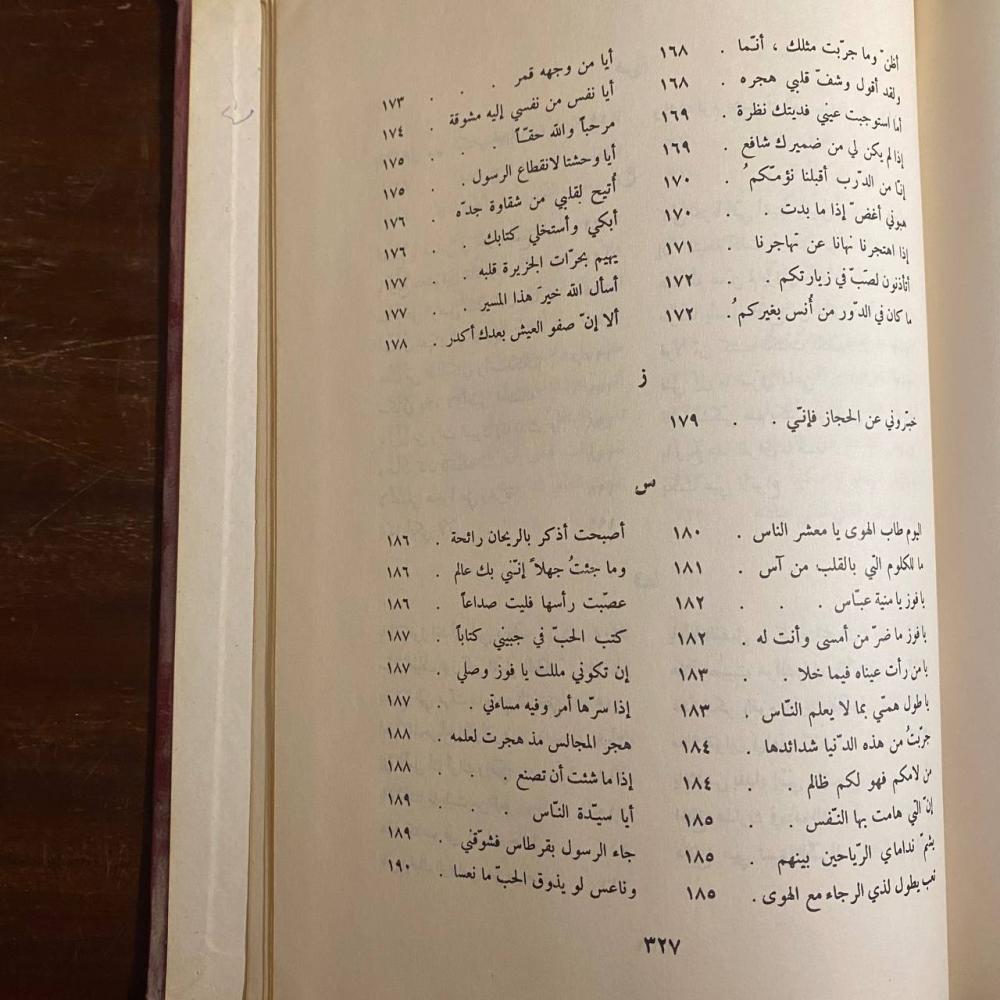 أظنّ وما جرّبت مثلك ، أنّما . ١٦٨
ولقد أقول وشفّ قلبي هجره ١٦٨
أما استوجبت عيني فديتك نظرة . ١٦٩
إذا لم يكن لي من ضميرك شافع . ١٦٩
إنّا من الدّرب أقبلنا نؤمّكمُ . ١٧٠
هبوني أغضّ إذا ما بدت . . ١٧٠
إذا اهتجرنا نهانا عن تهاجرنا . ١٧١
أتأذنون لصبّ في زيارتكم . . ١٧٢
ما كان في الدّور من أُنس بغيركمُ . ١٧٢
أيا من وجهه قمر . . . ١٧٣
أيا نفس من نفسي إليه مشوقة . ١٧٤
مرحباً والله حقّاً . . . ١٧٥
أيا وحشتا لانقطاع الرسول . . ١٧٥
أُتيح لقلبي من شقاوة جدّه . ١٧٦
أبكي وأستخلي كتابك . . ١٧٦
يهيم بحرّات الجزيرة قلبه . . ١٧٧
أسأل الله خيرَ هذا المسير . . ١٧٧
ألا إنّ صفو العيش بعدك أكدر . ١٧٨
ز
خبّروني عن الحجاز فإنّي . . ١٧٩
س
اليوم طاب الهوى يا معشر الناس . ١٨٠
ما للكلوم الّتي بالقلب من آس . ١٨١
يا فوز يا منية عبّاس . . . ١٨٢
يا فوز ما ضرّ من أمسى وأنت له . ١٨٢
يا من رأت عيناه فيما خلا . . ١٨٣
يا طول همّي بما لا يعلم النّاس . ١٨٣
جرّبتُ من هذه الدّنيا شدائدها . ١٨٤
من لامكم فهو لكم ظالم . . ١٨٤
إنّ الّتي هامت بها النّفس . . ١٨٥
يشمّ نداماي الرّياحين بينهم . ١٨٥
تعب يطول لذي الرجاء مع الهوى . ١٨٥
أصبحت أذكر بالريحان رائحة . ١٨٦
وما جئتُ جهلاً إنّني بك عالم . ١٨٦
عصّبت رأسها فليت صداعاً . ١٨٦
كتب الحبّ في جبيني كتاباً . ١٨٧
إن تكوني مللت يا فوز وصلي . ١٨٧
إذا سرّها أمر وفيه مساءتي . . ١٨٧
هجر المجالس مذ هجرت لعلمه . ١٨٨
إذا ما شئت أن تصنع . . . ١٨٨
أيا سيّدة النّاس . . . ١٨٩
جاء الرسول بقرطاس فشوّقني . ١٨٩
وناعس لو يذوق الحبّ ما نعسا . ١٩٠
٣٢٧